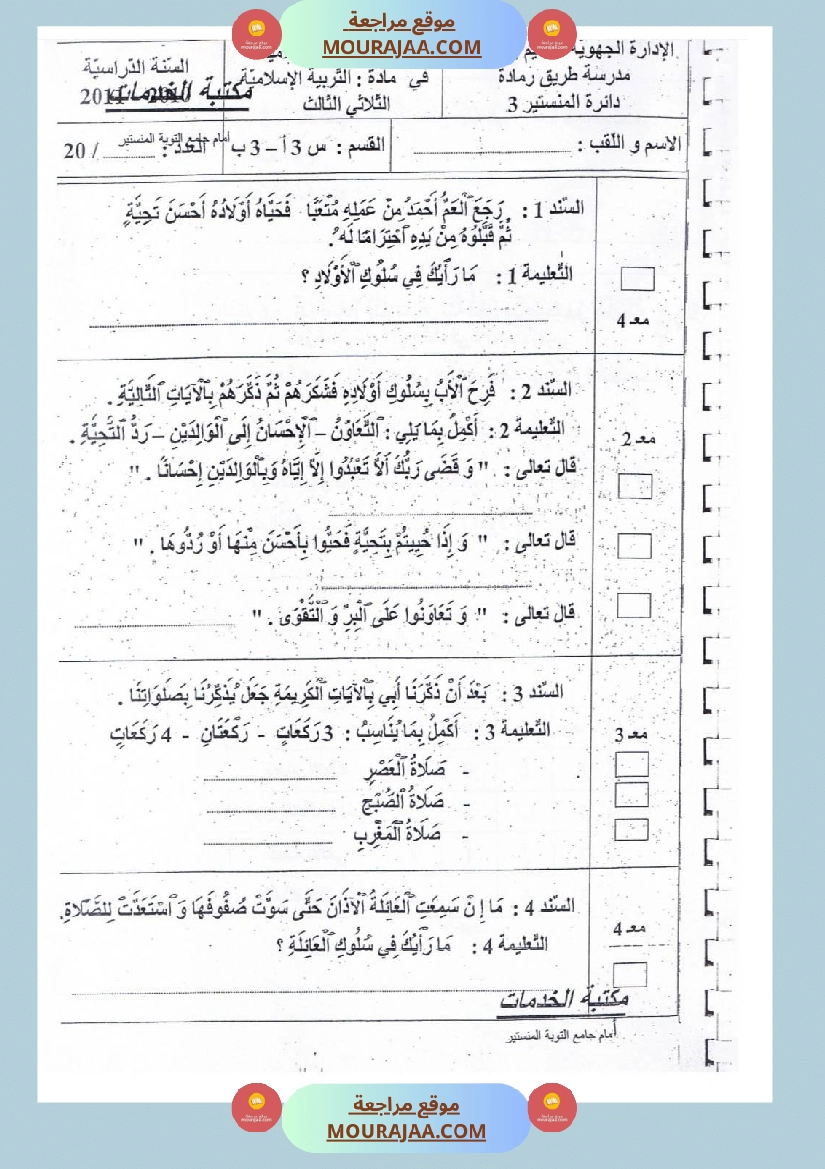 موقع مراجعة
MOURAJAA.COM
الإدارة الجهوية
مدرسة طريق رمادة
دائرة المنستير 3
في مادة : التربية الإسلامية
الثلاثي الثالث
السنة الدراسية
مكتبة الخدمات
أمام جامع التوبة المنستير
الاسم و اللقب :
القسم : س 3 أ – 3 ب
العدد : / 20
السند 1 : رَجَعَ ٱلْعَمُّ أَحْمَدُ مِنْ عَمَلِهِ مُتْعَبًا فَحَيَّاهُ أَوْلَادُهُ أَحْسَنَ تَحِيَّةٍ
ثُمَّ قَبَّلُوهُ مِنْ يَدِهِ ٱحْتِرَامًا لَهُ.
التعليمة 1 : مَا رَأْيُكَ فِي سُلُوكِ ٱلْأَوْلَادِ ؟
معـ 4
السند 2 : فَرِحَ ٱلْأَبُ بِسُلُوكِ أَوْلَادِهِ فَشَكَرَهُمْ ثُمَّ ذَكَّرَهُمْ بِٱلْآيَاتِ ٱلتَّالِيَةِ .
التعليمة 2 : أَكْمِلُ بِمَا يَلِي : ٱلتَّعَاوُنُ – ٱلْإِحْسَانُ إِلَى ٱلْوَالِدَيْنِ – رَدُّ ٱلتَّحِيَّةِ .
معـ 2
قال تعالى : " وَ قَضَى رَبُّكَ أَلَّا تَعْبُدُوا إِلَّا إِيَّاهُ وَبِٱلْوَالِدَيْنِ إِحْسَانًا . "
قال تعالى : " وَ إِذَا حُيِيتُمْ بِتَحِيَّةٍ فَحَيُّوا بِأَحْسَنَ مِنْهَا أَوْ رُدُّوهَا . "
قال تعالى : " وَ تَعَاوَنُوا عَلَى ٱلْبِرِّ وَ ٱلتَّقْوَى . "
السند 3 : بَعْدَ أَنْ ذَكَّرَنَا أَبِي بِٱلْآيَاتِ ٱلْكَرِيمَةِ جَعَلَ يُذَكِّرُنَا بِصَلَوَاتِنَا .
التعليمة 3 : أَكْمِلُ بِمَا يُنَاسِبُ : 3 رَكَعَاتٍ - رَكْعَتَانِ - 4 رَكَعَاتٍ
معـ 3
- صَلَاةُ ٱلْعَصْرِ
- صَلَاةُ ٱلصُّبْحِ
- صَلَاةُ ٱلْمَغْرِبِ
السند 4 : مَا إِنْ سَمِعَتِ ٱلْعَائِلَةُ ٱلْآذَانَ حَتَّى سَوَّتْ صُفُوفَهَا وَ ٱسْتَعَدَّتْ لِلصَّلَاةِ.
معـ 4
التعليمة 4 : مَا رَأْيُكَ فِي سُلُوكِ ٱلْعَائِلَةِ ؟
مكتبة الخدمات
أمام جامع التوبة المنستير
موقع مراجعة
MOURAJAA.COM